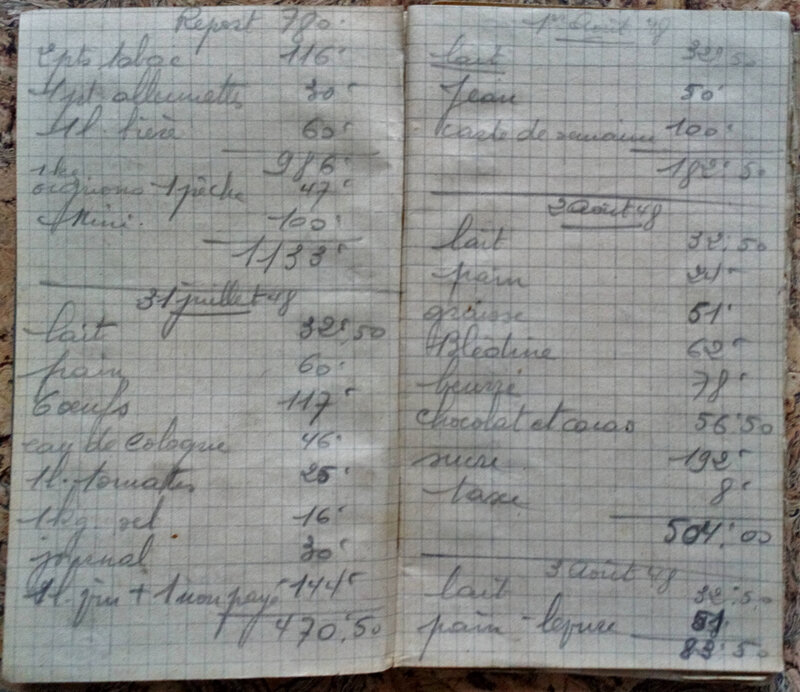 Report 780
2 pts tabac 116
1 pt allumettes 30
1 l. bière 60
986
1 kg oignons 1 pêche 47
Mimi. 100
1133
31 juillet 48
lait 32,50
pain 60
6 œufs 117
eau de Cologne 46
1 l. tomates 25
1 kg sel 16
journal 30
1 l. + 1 non payé 144
470,50
1er Août 48
lait 32,50
Jean 50
carte de semaine 100
182,50
2 Août 48
lait 32,50
pain 24
graisse 51
Blédine 62
beurre 78
chocolat et cacao 56,50
sucre 192
taxe 8
504,00
3 Août 48
lait 32,50
pain - 51
83,50